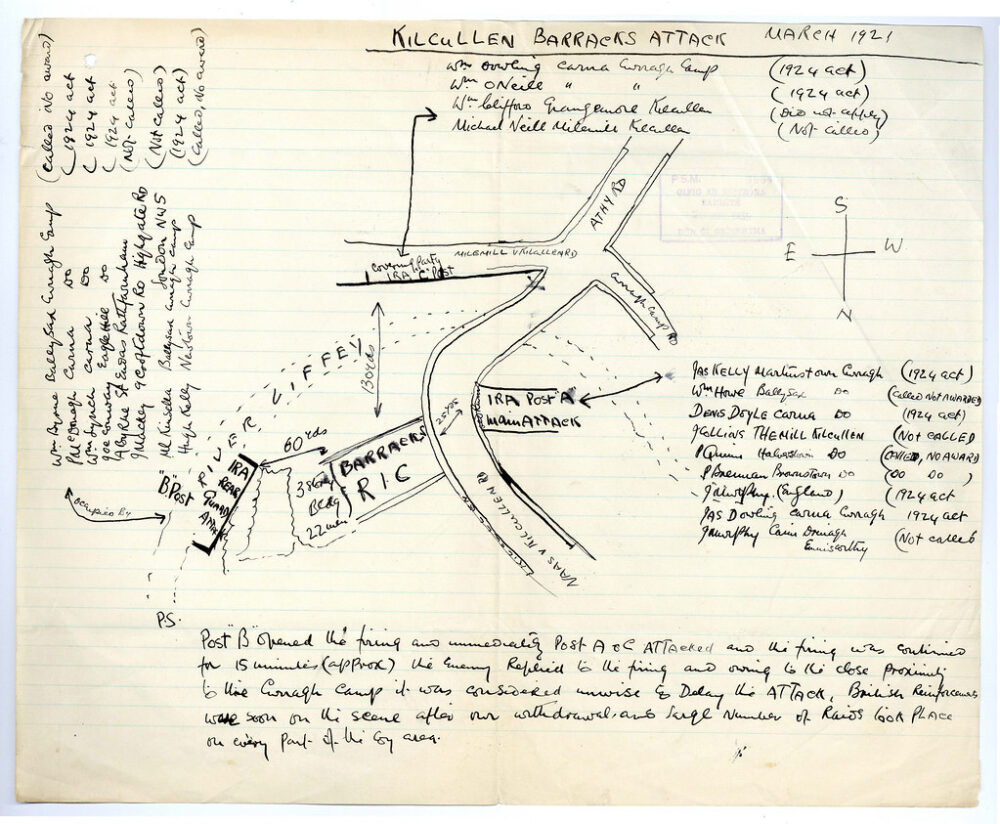 KILCULLEN BARRACKS ATTACK MARCH 1921
Wm Dowling Carna Curragh Camp (1924 act)
Wm ONeill " " (1924 act)
Wm Clifford Grangemore Kilcullen (Did not apply)
Michael Neill Milemill Kilcullen (Not called)
ATHY RD
MILEMILL & KILCULLEN RD
Covering Party
IRA "C" Post
Curragh Camp RD
S
E W
N
130 yds
RIVER LIFFEY
60 yds
25 yds
IRA Post A
main ATTACK
BARRACKS
RIC
3 Storey
Bldg
22 men
IRA
REAR
Guard
"B" Post
occupied by
NAAS & KILCULLEN RD
JAS KELLY Martinstown Curragh (1924 act)
Wm Howe Ballysax Do (Called NOT AWARDED
Denis Doyle Carna Do (1924 act)
J Collins THE MILL KILCULLEN (NOT CALLED
P Quinn Do (CALLED, NO AWARD
P Brennan Brownstown Do (DO DO )
J Murphy (England) (1924 act
JAS Dowling Carna Curragh 1924 act
J Murphy Enniscorthy (Not called
Wm Byrne Ballysax Curragh Camp (Called no award)
P McDonagh Carna Do (1924 act
Wm Lynch Carna Do (1924 act
Joe Conway Eagle Hill Do (1924 act
A Byrne St Endas Rathfarnham (Not called)
J Mackey 9 Croftdown Rd Highgate Rd London NW5 (Not called)
Ml Kinsella Ballysax Curragh Camp (1924 act)
Hugh Kelly Curragh Camp (Called, No award)
P.S.
Post "B" opened the firing and immediately Post A & C ATTACKED and the firing was continued
for 15 minutes (approx) the Enemy Replied to the firing and owing to the close proximity
to the Curragh Camp it was considered unwise to Delay the ATTACK, British Reinforcements
were soon on the scene after our withdrawal and large Number of Raids took PLACE
on every part of the Coy area.